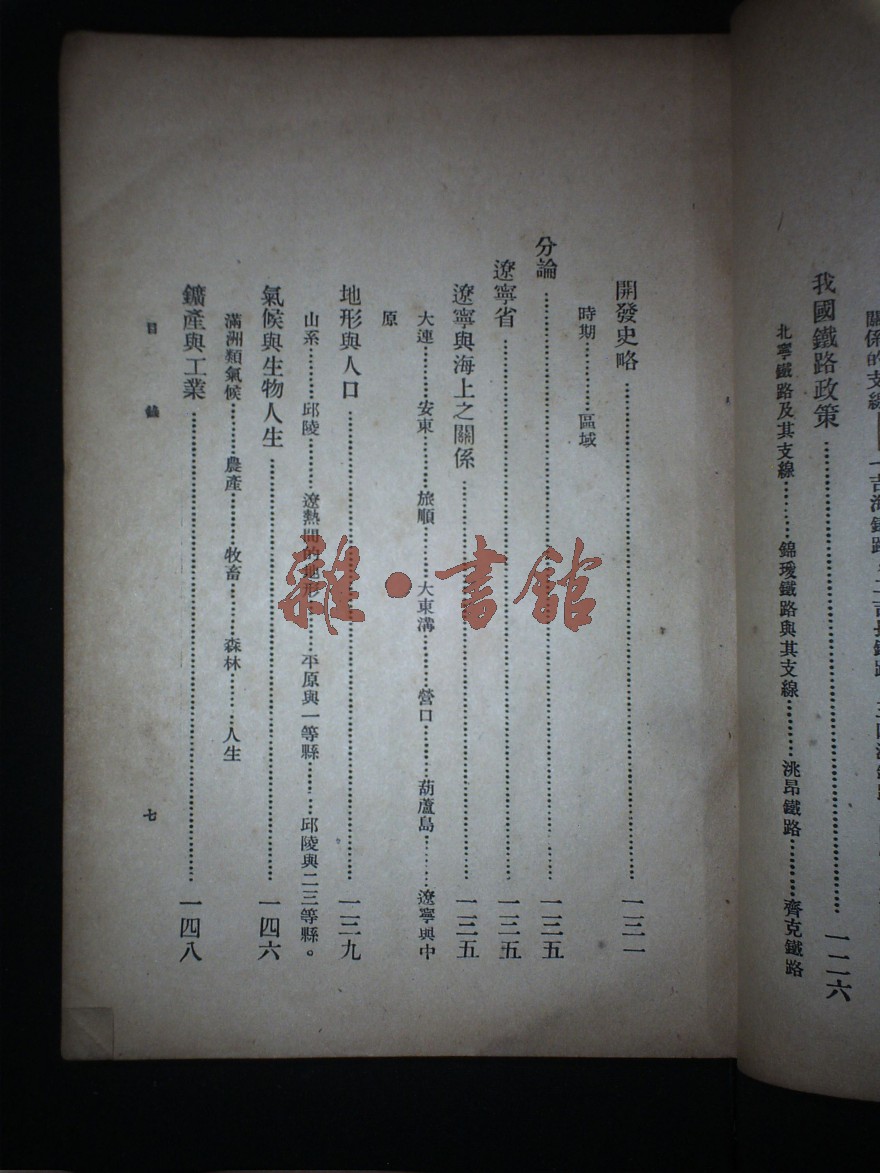 關係的支線
我國鐵路政策……一二六
北寧鐵路及其支線……錦璦鐵路與其支線……洮昂鐵路……齊克鐵路
開發史略……一三一
時期……區域
分論……一三五
遼寧省……一三五
遼寧與海上之關係……一三五
大連……安東……旅順……大東溝……營口……葫蘆島……遼寧與中
原
地形與人口……一三九
山系……邱陵……遼熱間的地形……平原與一等縣……邱陵與二三等縣。
氣候與生物人生……一四六
滿洲類氣候……農產……牧畜……森林……人生
鑛產與工業……一四八
目錄
七
雜·書館